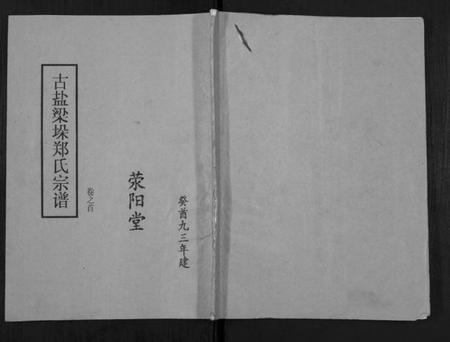 古盐梁垛郑氏宗谱
卷之首
荥阳堂
癸酉九三年建